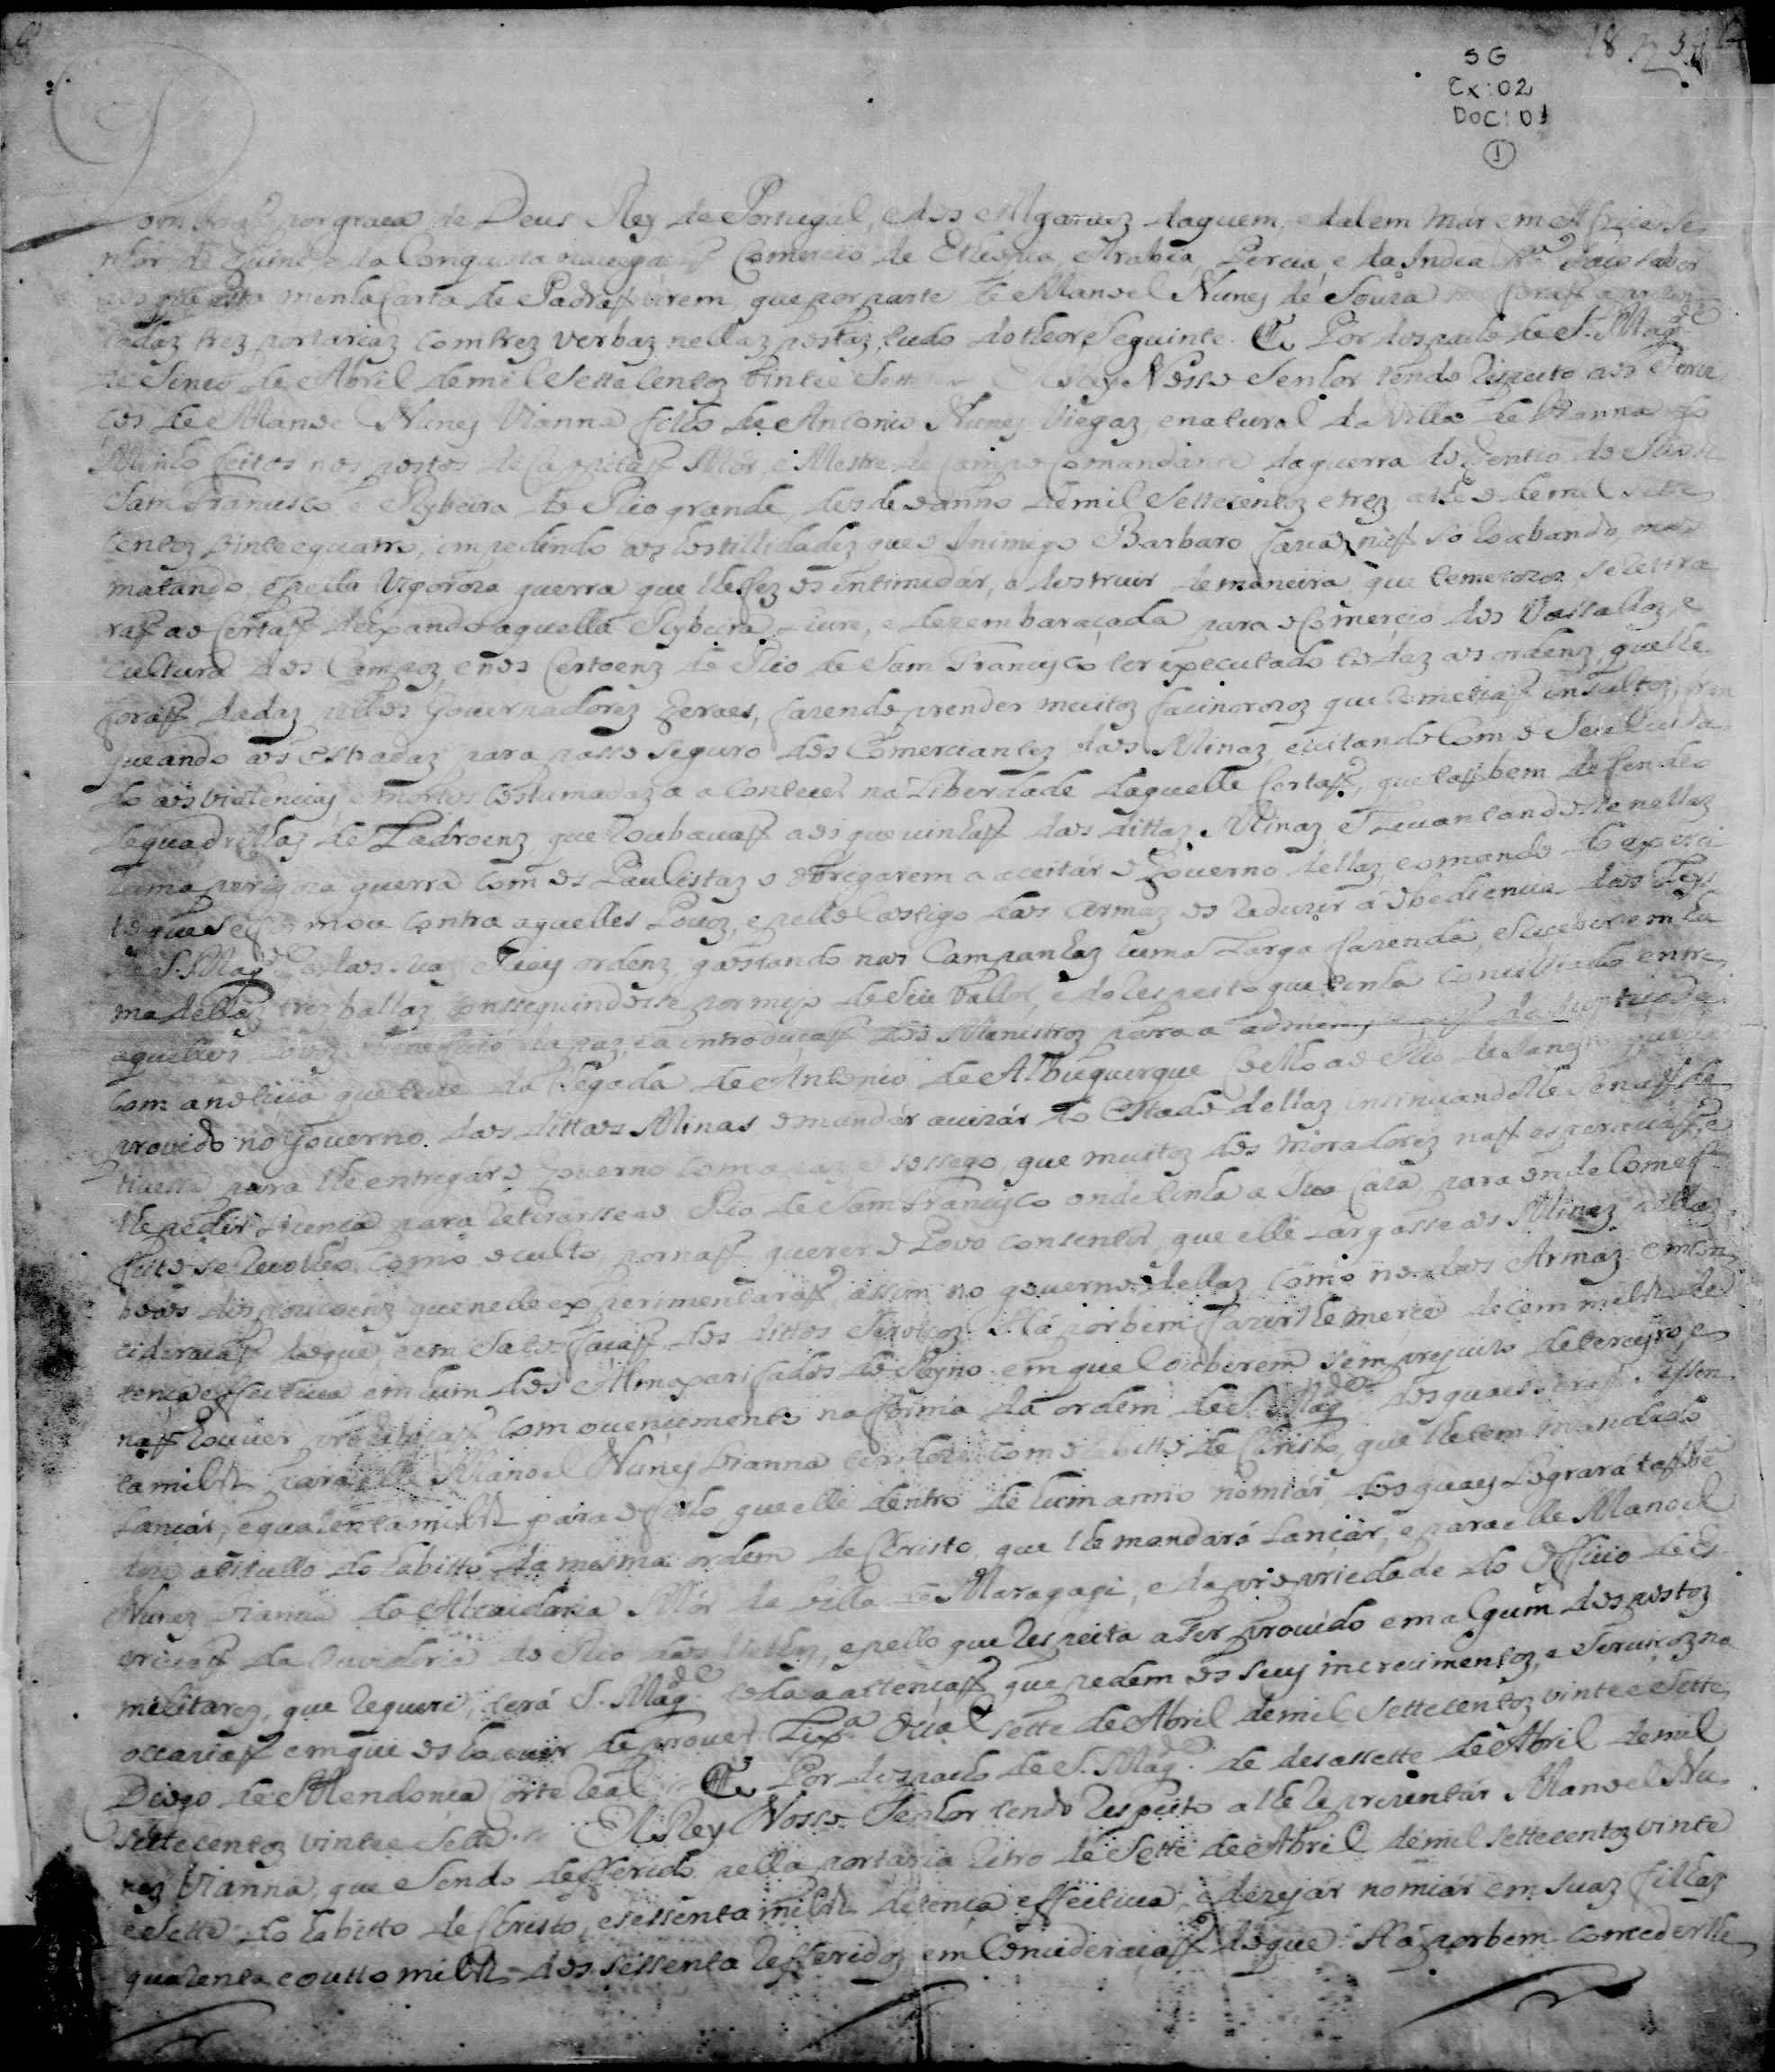 SG
Cx:02
DOC:01
1
por graça de Deus Rey de Portugal, e dos Algarvez daquem, e dalem mar em Africa Se
nhor de Guine e da Conquista navegaçaõ Comercio de Ethiopia, Arabia, Percia, e da India &ª faço saber
aos que esta minha Carta de Padraõ virem, que por parte de Manoel Nunes de Souza foraõ aprezen
tadaz trez portariaz com trez verbaz nellaz postaz, tudo do theor Seguinte. Por despacho de S. Magde
de Sinco de Abril de mil Settecentoz vinte e Sette El Rey Nosso Senhor tendo respeito aos Servi
cos de Manoel Nunes Vianna filho de Antonio Nunes Viegaz, e natural da Villa de Vianna do
Minho feitos nos postos de Cappitaõ Mór, e Mestre de Campo Comandante da guerra do Gentio do Rio de
Sam Francisco e Rybeira do Rio grande, desde o anno de mil Settecentoz e trez athe o de mil Sette
centoz vinte e quatro, impedindo as hostillidadez que o Inimigo Barbaro fazia naõ só roubando, mas
matando, e pella Vigoroza guerra que lhe fez os intimidar, e destruir de maneira, que temerozos se retira
raõ ao Certaõ deixando aquella Rybeira Livre, e dezembaraçada para o Comercio dos Vassalloz, e
cultura dos Campoz, e nos Certoenz do Rio de Sam Francisco ter executado todaz as ordenz, que lhe
foraõ dadaz pellos Governadorez Geraes, fazendo prender muitoz facinorozoz que cometiaõ insultoz, fran
queando as estradaz para passo seguro dos Comerciantez das Minaz, evitando Com o Seu Cuida
do as violencias, e mortes costumadaz a a contecer na Liberdade daquelle Certaõ, que taõbem defendeo
de quadrilhas de Ladroenz que roubavaõ aos que vinhaõ das dittaz Minaz e Levantandosse nellaz
huma perigoza guerra com os Paulistaz o obrigarem a aceitár o Governo dellaz, e o mando do exerci
to que se formou contra aquelles Povoz, e pello Castigo das armaz os reduzir á obediencia das Leys
de S. Magde e das suaz Reays ordenz gastando nas Campanhaz huma Larga fazenda, e Receber em hu
ma dellaz trez ballaz Consseguindosse por meyo de seu Vallor, e do respeito que tinha Conciliado entre
aquelles Povoz o beneficio da paz, e a introduçaõ dos Ministroz para a administraçaõ da Justiça
Com a noticia que teve da chegada de Antonio de Albuquerque Coelho ao Rio de Janeyro
provido no Governo das dittas Minas, o mandár avizár do Estado dellaz, insinuandolhe
tivesse para lhe entregar o governo com a paz, e sossego, que muitoz dos moradorez naõ esperavaõ, e
lhe pedir Licença para retirarsse ao Rio de Sam Francisco onde tinha a Sua Caza, para onde Com eff
feito se recolheo como occulto, por naõ querer o Povo consentir, que elle largasse as Minaz pellaz
boas dispoziçoenz que nelle experimentaraõ, assim no governo dellaz, como no das Armaz: em con
cideraçaõ do que, e em Satisfaçaõ dos dittos Serviçoz: Há por bem fazerlhe merce de cem mil reis de
tença effectiva em hum dos Almoxarifados do Reyno, em que Couberem sem prejuizo de terceyro, e
naõ houver prohibiçaõ com o vencimento na forma da ordem de S. Magde dos quaes seraõ sessen
ta mil reis para elle Manoel Nunes Vianna ter doze com o habitto de Christo, que lhe tem mandado
Lançár, e quarenta mil reis para o filho, que elle dentro de hum anno nomiár, dos quaes Lograrà taõbē
doze a titullo do habitto da mesma ordem de Christo, que lhe mandará Lançár, e para elle Manoel
Nunez Vianna da Alcaidaria Mór da villa de Maragogi, e da propriedade do Officio de Es
crivaõ da Ouvidoria do Rio das Velhaz, e pello que respeita a Ser provído em algum dos postoz
militarez, que requere, terá S. Magde toda a attençaõ, que pedem os seus merecimentoz, e Serviçoz na
occaziaõ em que os houver de prover. Lixª Occal sette de Abril de mil settecentoz vinte e Sette
Diogo de Mendonça Corte Real. Por despacho de S. Magde de desassette de Abril de mil
settecentoz vinte e Sette. El Rey Nosso Senhor tendo respeito a lhe reprezentár Manoel Nu
nez Vianna, que Sendo defferido pella portaria retro de Sette de Abril de mil settecentoz vinte
e Sette do habitto de Christo, e sessenta mil reis de tença effectiva, e dezejár nomiár em suaz filhaz
quarenta e outto mil reis dos sessenta refferidoz, em Concideraçaõ do que: Há por bem concederlhe